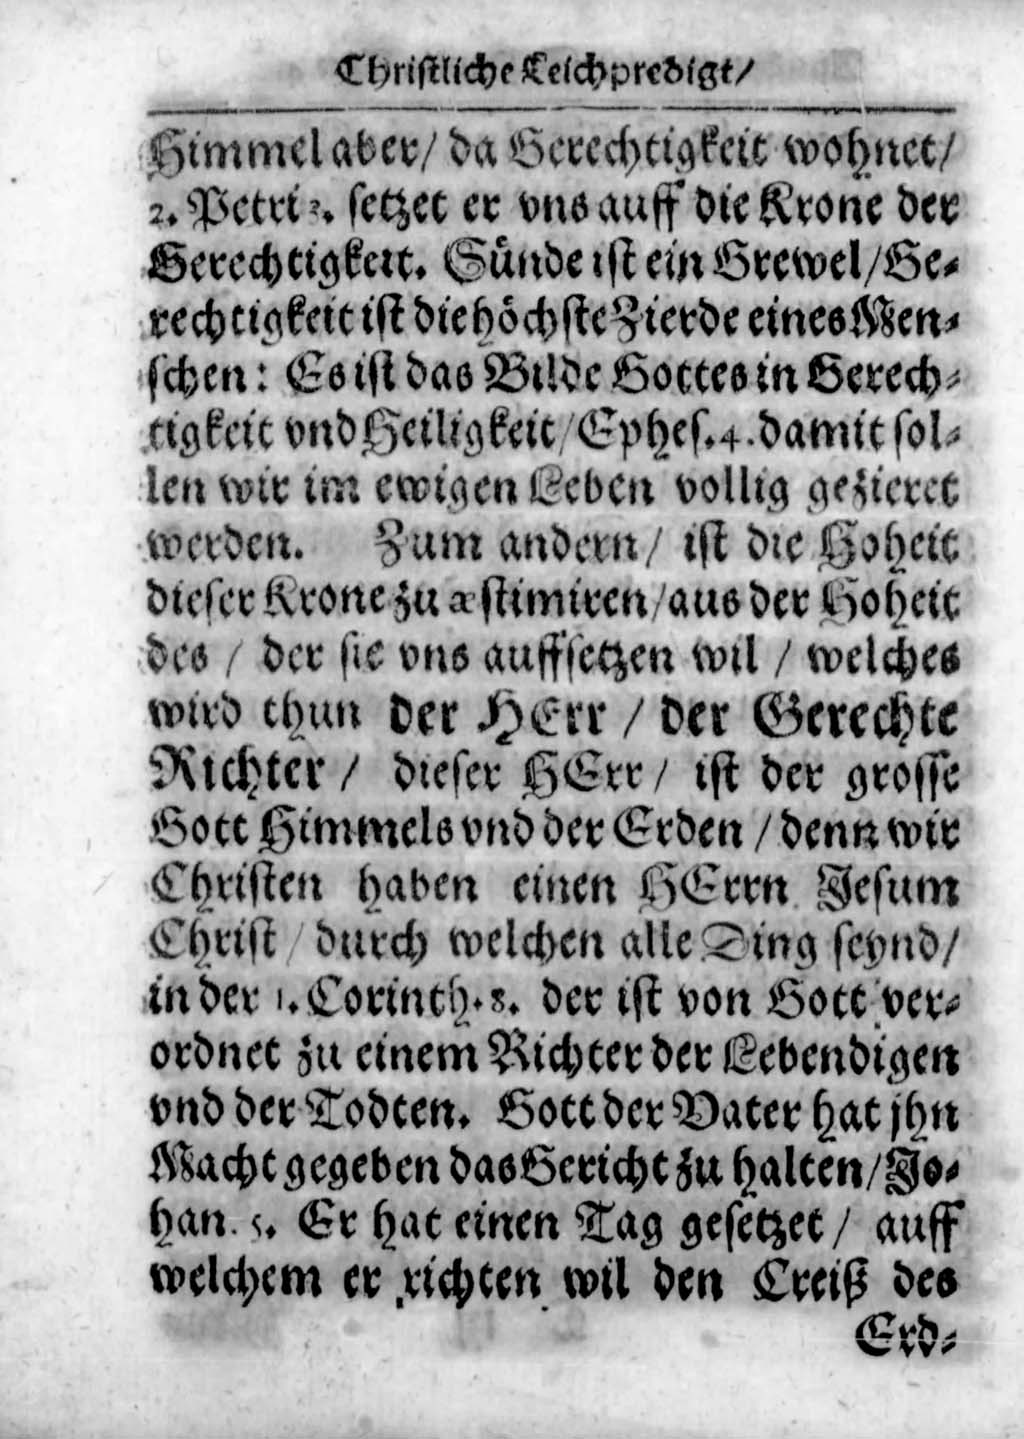 Christliche Leichpredigt/
Himmel aber/ da Gerechtigkeit wohnet/
2. Petri 3. setzet er vns auff die Krone der
Gerechtigkeit. Sünde ist ein Grewel/Ge-
rechtigkeit ist die höchste Zierde eines Men-
schen: Es ist das Bilde Gottes in Gerech-
tigkeit vnd Heiligkeit/Ephes. 4. damit sol-
len wir im ewigen Leben vollig gezieret
werden. Zum andern/ ist die Hoheit
dieser Krone zu æstimiren/aus der Hoheit
des / der sie vns auffsetzen wil / welches
wird thun der HErr / der Gerechte
Richter / dieser HErr/ ist der grosse
Gott Himmels vnd der Erden / denn wir
Christen haben einen HErrn Jesum
Christ/ durch welchen alle Ding seynd/
in der 1. Corinth. 8. der ist von Gott ver-
ordnet zu einem Richter der Lebendigen
vnd der Todten. Gott der Vater hat jhn
Macht gegeben das Gericht zu halten/Jo-
han. 5. Er hat einen Tag gesetzet/ auff
welchem er richten wil den Creiß des
Erd-